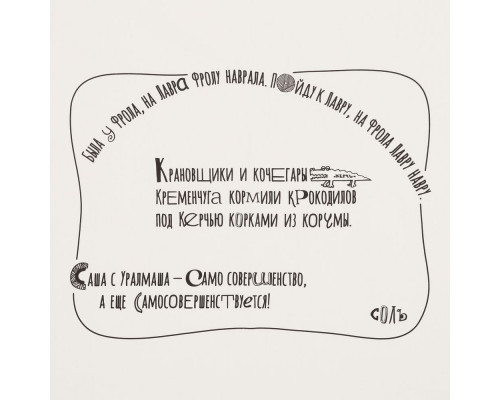 Была у Фрола, на Лавра Фролу наврала. Пойду к Лавру, на Фрола Лавру навру.
Крановщики и кочегары
Кременчуга кормили крокодилов
под Керчью корками из корчмы.
Саша с Уралмаша – Само совершенство,
а еще Самосовершенствуется!
Соль